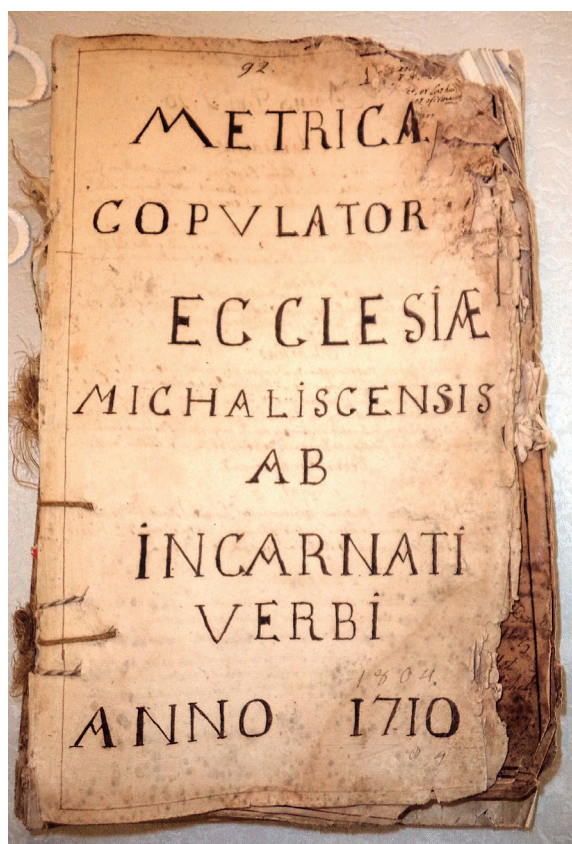 92.
METRICA
COPVLATOR
ECCLESIÆ
MICHALiSCENSIS
AB
iNCARNATi
VERBi
1804.
ANNO 1710